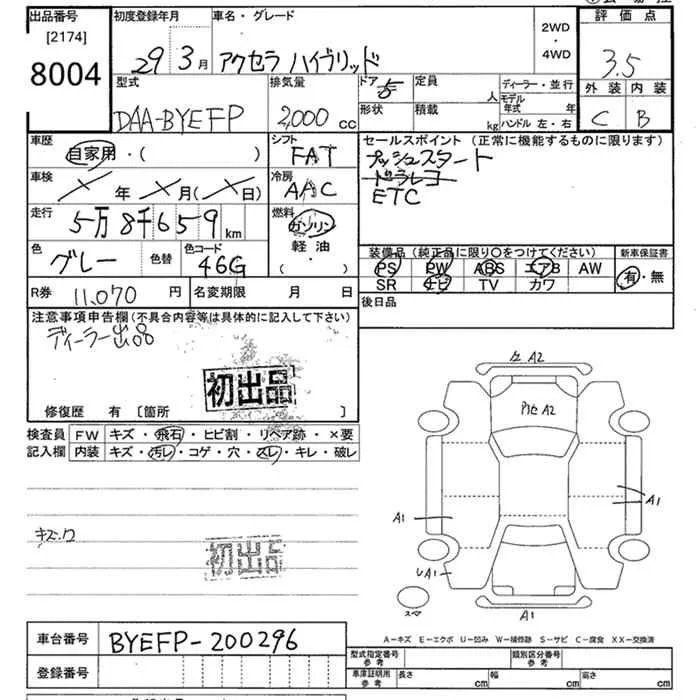 出品番号 初度登録年月 車名・グレード 評価点
[2174] 29 3月 アクセラ ハイブリッド 2WD・4WD 3.5
8004
型式 排気量 ドア 5 定員 人 ディーラー・並行 外装 内装
DAA-BYEFP 2,000 cc 形状 積載 kg モデル年式 年 C B
ハンドル 左・右
車歴 シフト セールスポイント (正常に機能するものに限ります)
自家用・( ) FAT プッシュスタート
車検 冷房 ドラレコ
年 月( 日) AAC ETC
走行 5万8千659km 燃料 ガソリン
軽油
・( )
色 グレー 色替 色コード 46G 装備品 (純正品に限り○をつけてください) 新車保証書
PS PW ABS エアB AW 有・無
SR ナビ TV カワ
R券 11,070円 名変期限 月 日 後日品
注意事項申告欄 (不具合内容等は具体的に記入して下さい)
ディーラー出品
初出品
修復歴 有 [箇所 ]
検査員 FW キズ・飛石・ヒビ割・リペア跡・×要
記入欄 内装 キズ・汚レ・コゲ・穴・スレ・キレ・破レ
A2
A2
A1
A1
キズ.ワ
初出品
UA1
スペア
A1
A-キズ E-エクボ U-凹み W-補修跡 S-サビ C-腐食 XX-交換済
車台番号 BYEFP-200296
登録番号
型式指定番号 参考 類別区分番号 参考
車庫証明用 参考 長さ cm 幅 cm 高さ cm